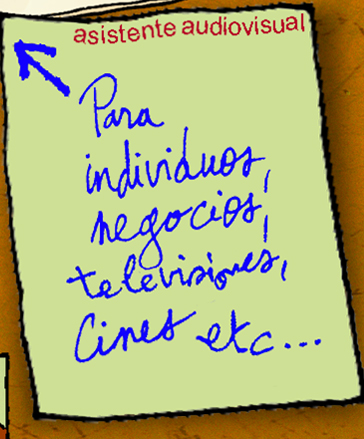 asistente audiovisual
Para
individuos,
negocios,
televisiones,
Cines etc...